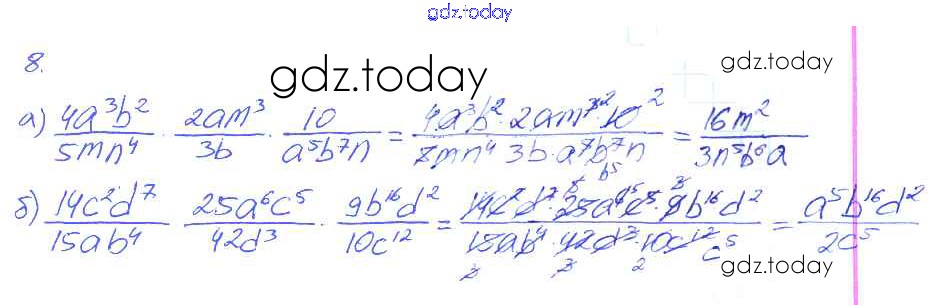 gdz.today
8.
gdz.today
gdz.today
а) 4a³b²/5mn⁴ · 2am³/3b · 10/a⁵b⁷n = 4a³b²·2am³·10/7mn⁴·3b·a⁷b⁷n = 16m²/3n⁵b⁶a
б) 14c²d⁷/15ab⁴ · 25a⁶c⁵/42d³ · 9b¹⁶d²/10c¹² = 14c²d⁷·25a⁶c⁵·9b¹⁶d²/15ab⁴·42d³·10c¹² = a⁵b¹⁶d²/2c⁵
gdz.today